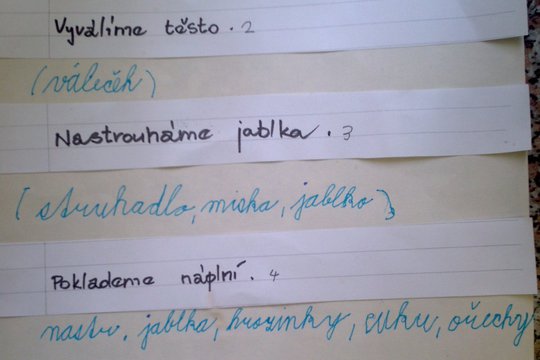 Vyválíme těsto. 2
(váleček)
Nastrouháme jablka. 3
(struhadlo, miska, jablko)
Poklademe náplní. 4
nastr. jablka, hrozinky, cukr, ořechy